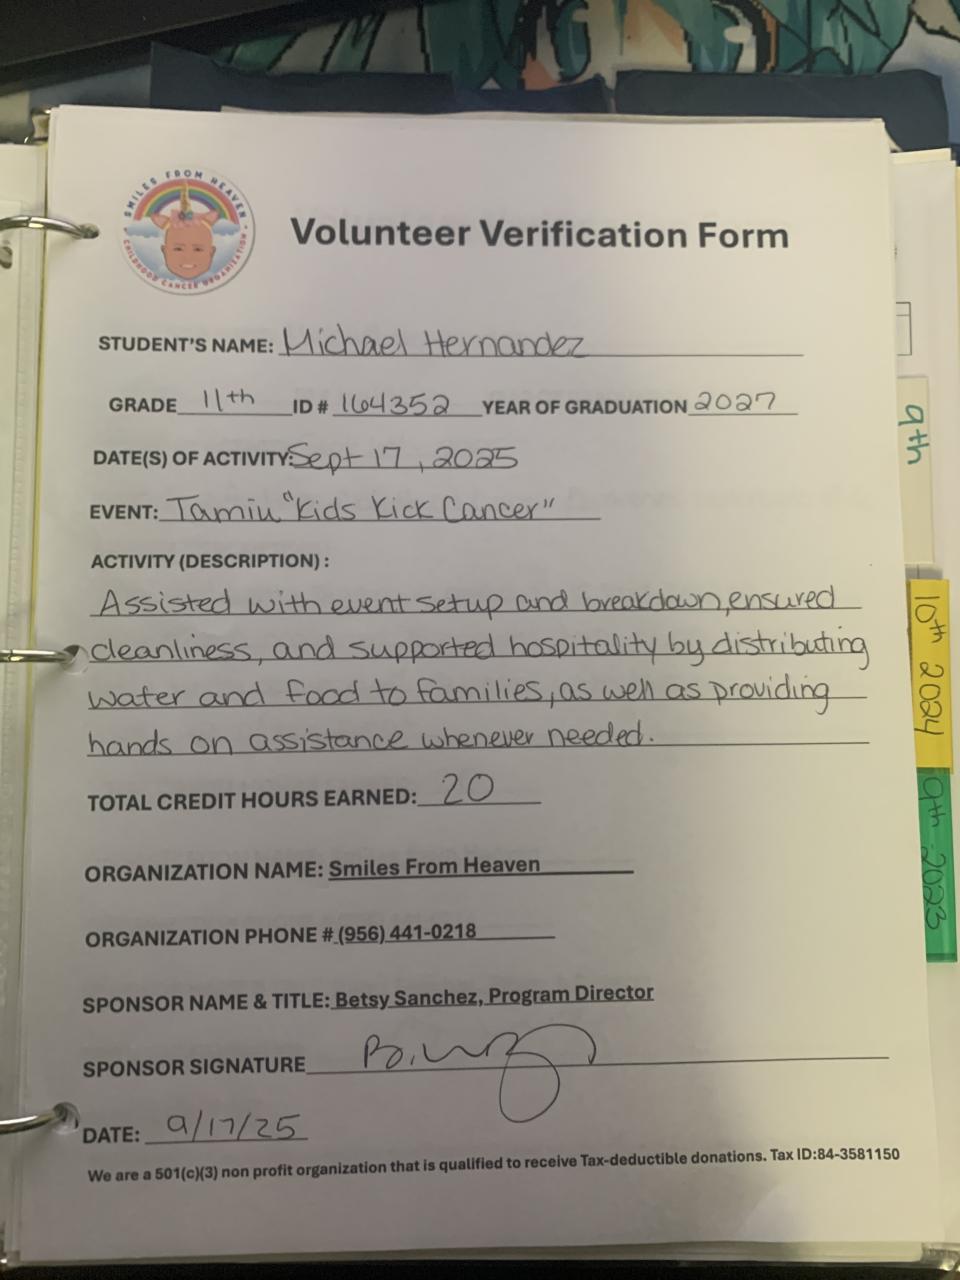 SMILES FROM HEAVEN
CHILDHOOD CANCER ORGANIZATION
Volunteer Verification Form
STUDENT'S NAME: Michael Hernandez
GRADE 11th ID # 164352 YEAR OF GRADUATION 2027
DATE(S) OF ACTIVITY: Sept 17, 2025
EVENT: Tamiu "Kids Kick Cancer"
ACTIVITY (DESCRIPTION) :
Assisted with event setup and breakdown, ensured
cleanliness, and supported hospitality by distributing
water and food to families, as well as providing
hands on assistance whenever needed.
TOTAL CREDIT HOURS EARNED: 20
ORGANIZATION NAME: Smiles From Heaven
ORGANIZATION PHONE # (956) 441-0218
SPONSOR NAME & TITLE: Betsy Sanchez, Program Director
SPONSOR SIGNATURE
DATE: 9/17/25
We are a 501(c)(3) non profit organization that is qualified to receive Tax-deductible donations. Tax ID:84-3581150
9th
10th 2024
9th 2023